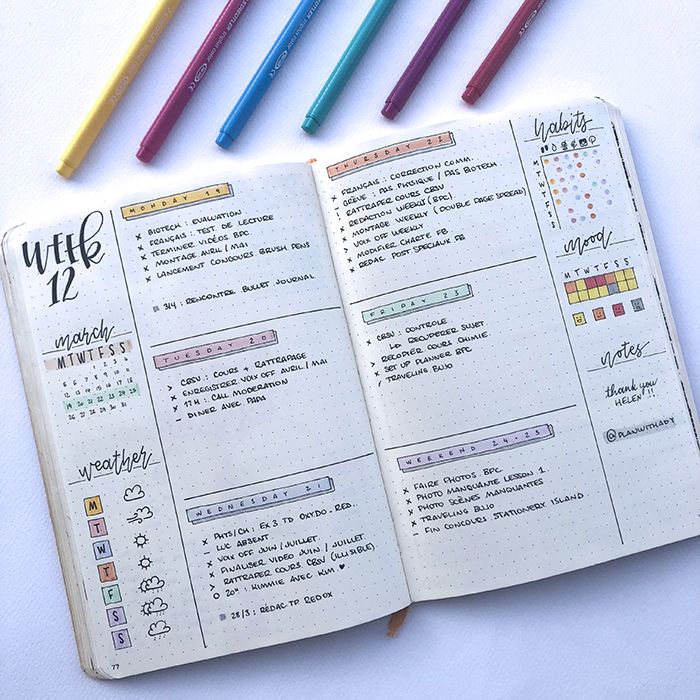 STAEDTLER triplus color
STAEDTLER triplus color
WEEK
12
march
M T W T F S S
1 2 3 4
5 6 7 8 9 10 11
12 13 14 15 16 17 18
19 20 21 22 23 24 25
26 27 28 29 30 31
weather
M
T
W
T
F
S
S
77
MONDAY 19
× BIOTECH : EVALUATION
× FRANÇAIS : TEST DE LECTURE
× TERMINER VIDÉOS BPC
× MONTAGE AVRIL / MAI
× LANCEMENT CONCOURS BRUSH PENS
3/4 : RENCONTRE BULLET JOURNAL
TUESDAY 20
> CBSV : COURS + RATTRAPAGE
× ENREGISTRER VOIX OFF AVRIL / MAI
× 17H : CALL MODERATION
– DINER AVEC PAPA
WEDNESDAY 21
× PHYS/CH : EX 3 TD OXYDO_RED.
– LUC ABSENT
× VOIX OFF JUIN / JUILLET
× FINALISER VIDÉO JUIN / JUILLET
> RATTRAPER COURS CBSV (ILLISIBLE)
O 20H : KIMMIE AVEC KIM ♥
28/3 : RÉDAC TP REDOX
THURSDAY 22
× FRANÇAIS : CORRECTION COMM.
– GRÈVE : PAS PHYSIQUE / PAS BIOTECH
RATTRAPER COURS CBSV
× REDACTION WEEKLY (BPC)
× MONTAGE WEEKLY (DOUBLE PAGE SPREAD)
× VOIX OFF WEEKLY
× MODIFIER CHARTE FB
× REDAC POST SPECIAUX FB
FRIDAY 23
× CBSV : CONTROLE
↳ RECUPERER SUJET
> RECOPIER COURS CHIMIE
> SET UP PLANNER BPC
TRAVELING BUJO
WEEKEND 24.25
× FAIRE PHOTOS BPC
× PHOTO MANQUANTE LESSON 1
× PHOTO SCÈNES MANQUANTES
× TRAVELING BUJO
– FIN CONCOURS STATIONERY ISLAND
habits
M
T
W
T
F
S
S
mood
M T W T F S S
notes
thank you
HELEN !!
@PLANWITHADY